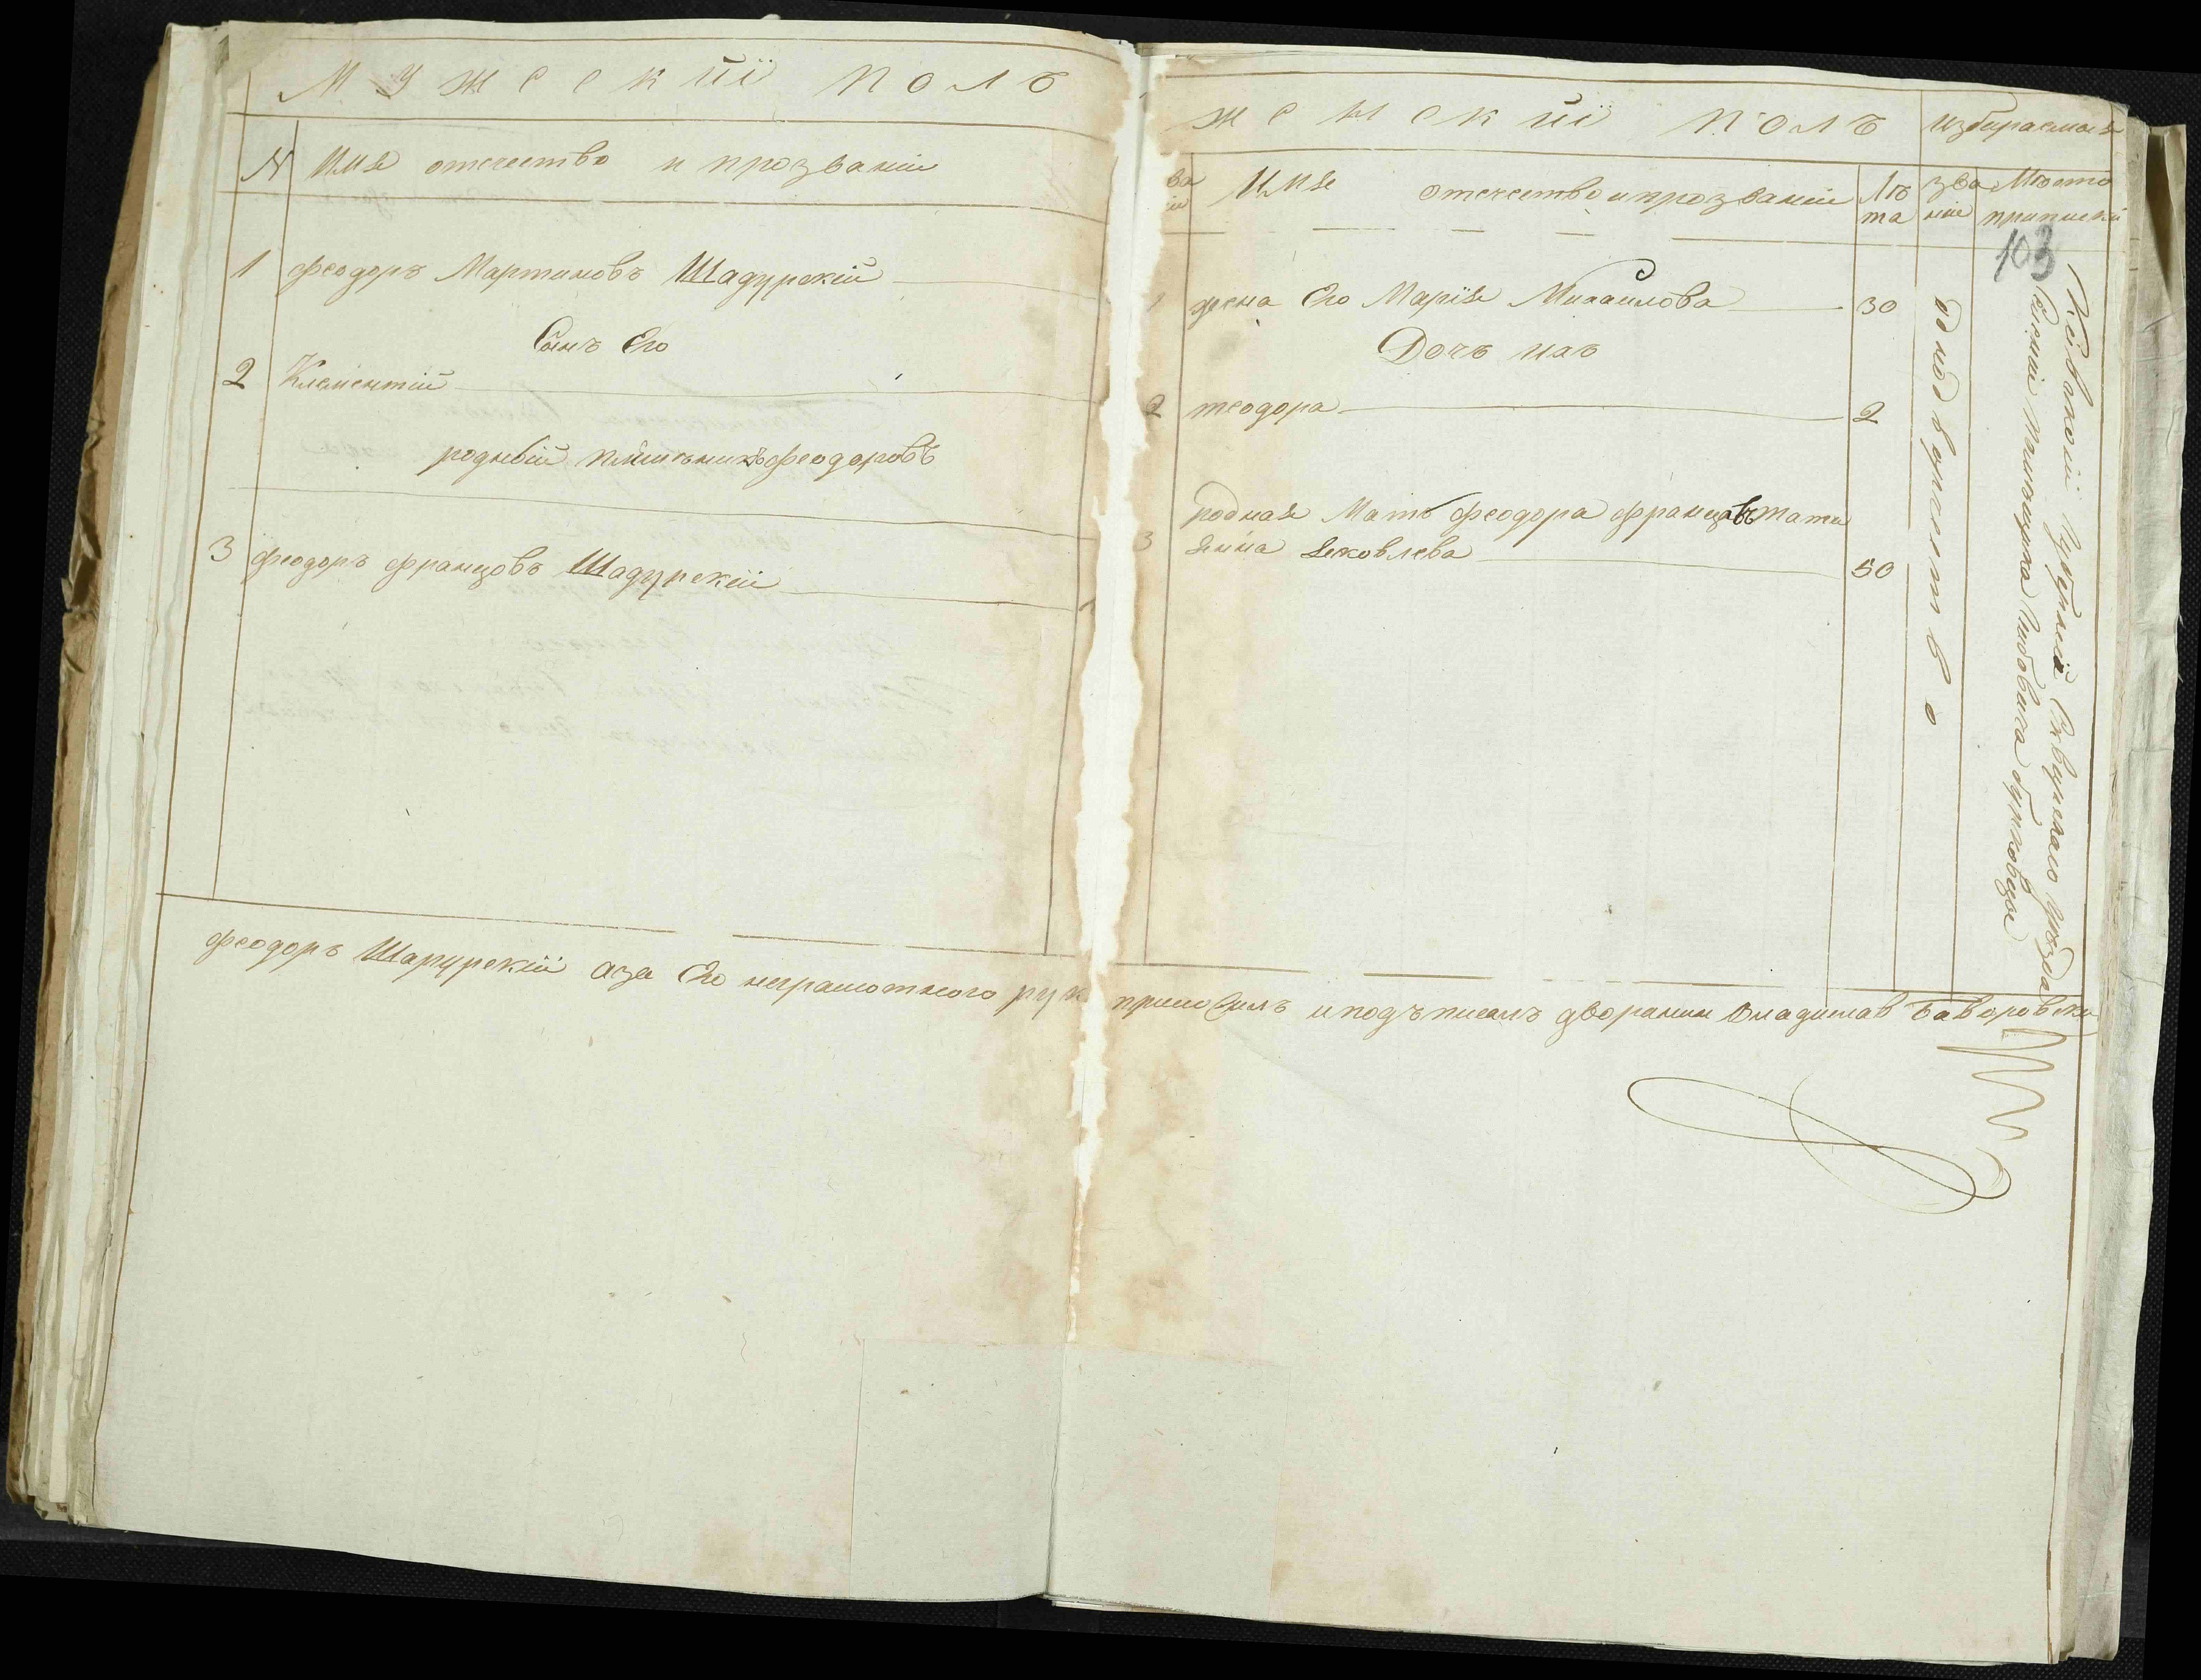 Мужескій полъ
N Имя отечество и прозваніи
1 феодоръ Мартиновъ Шадурскій
Сынъ Его
2 Клементій
родный племѣникъ феодоровъ
3 феодоръ францовъ Шадурскій
женскій полъ избираемыя
Имя отечество и прозваніи Лѣта званіе Мѣсто приписки
103
1 жена Его Марія Михаилова 30
Дочъ ихъ
2 теодора 2
родная Мать феодора францовъ тати
3 янна яковлева 50
однодворчество
Кіевской Губерніи Сквирского уѣзда
Селенія помѣщика
феодоръ Шарурскій аза Его неграмотного рук приложилъ и подъписалъ дворанин Владислав Баворовски